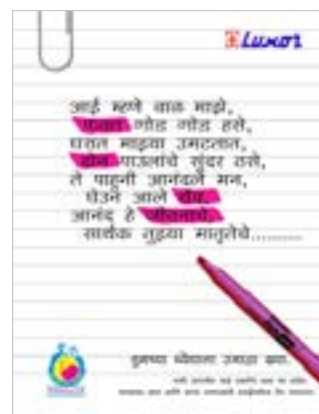 Luxor
आई म्हणे बाळ माझे,
गोड गोड हसे,
घरात माझ्या उमटतात,
दोन पाउलांचे सुंदर ठसे,
ते पाहूनी आनंदले मन,
घेउन आले
आनंद हे जीवनाचे,
सार्थक तुझ्या मातृतेचे.........
तुमच्या ध्येयाला उजाळा द्या.